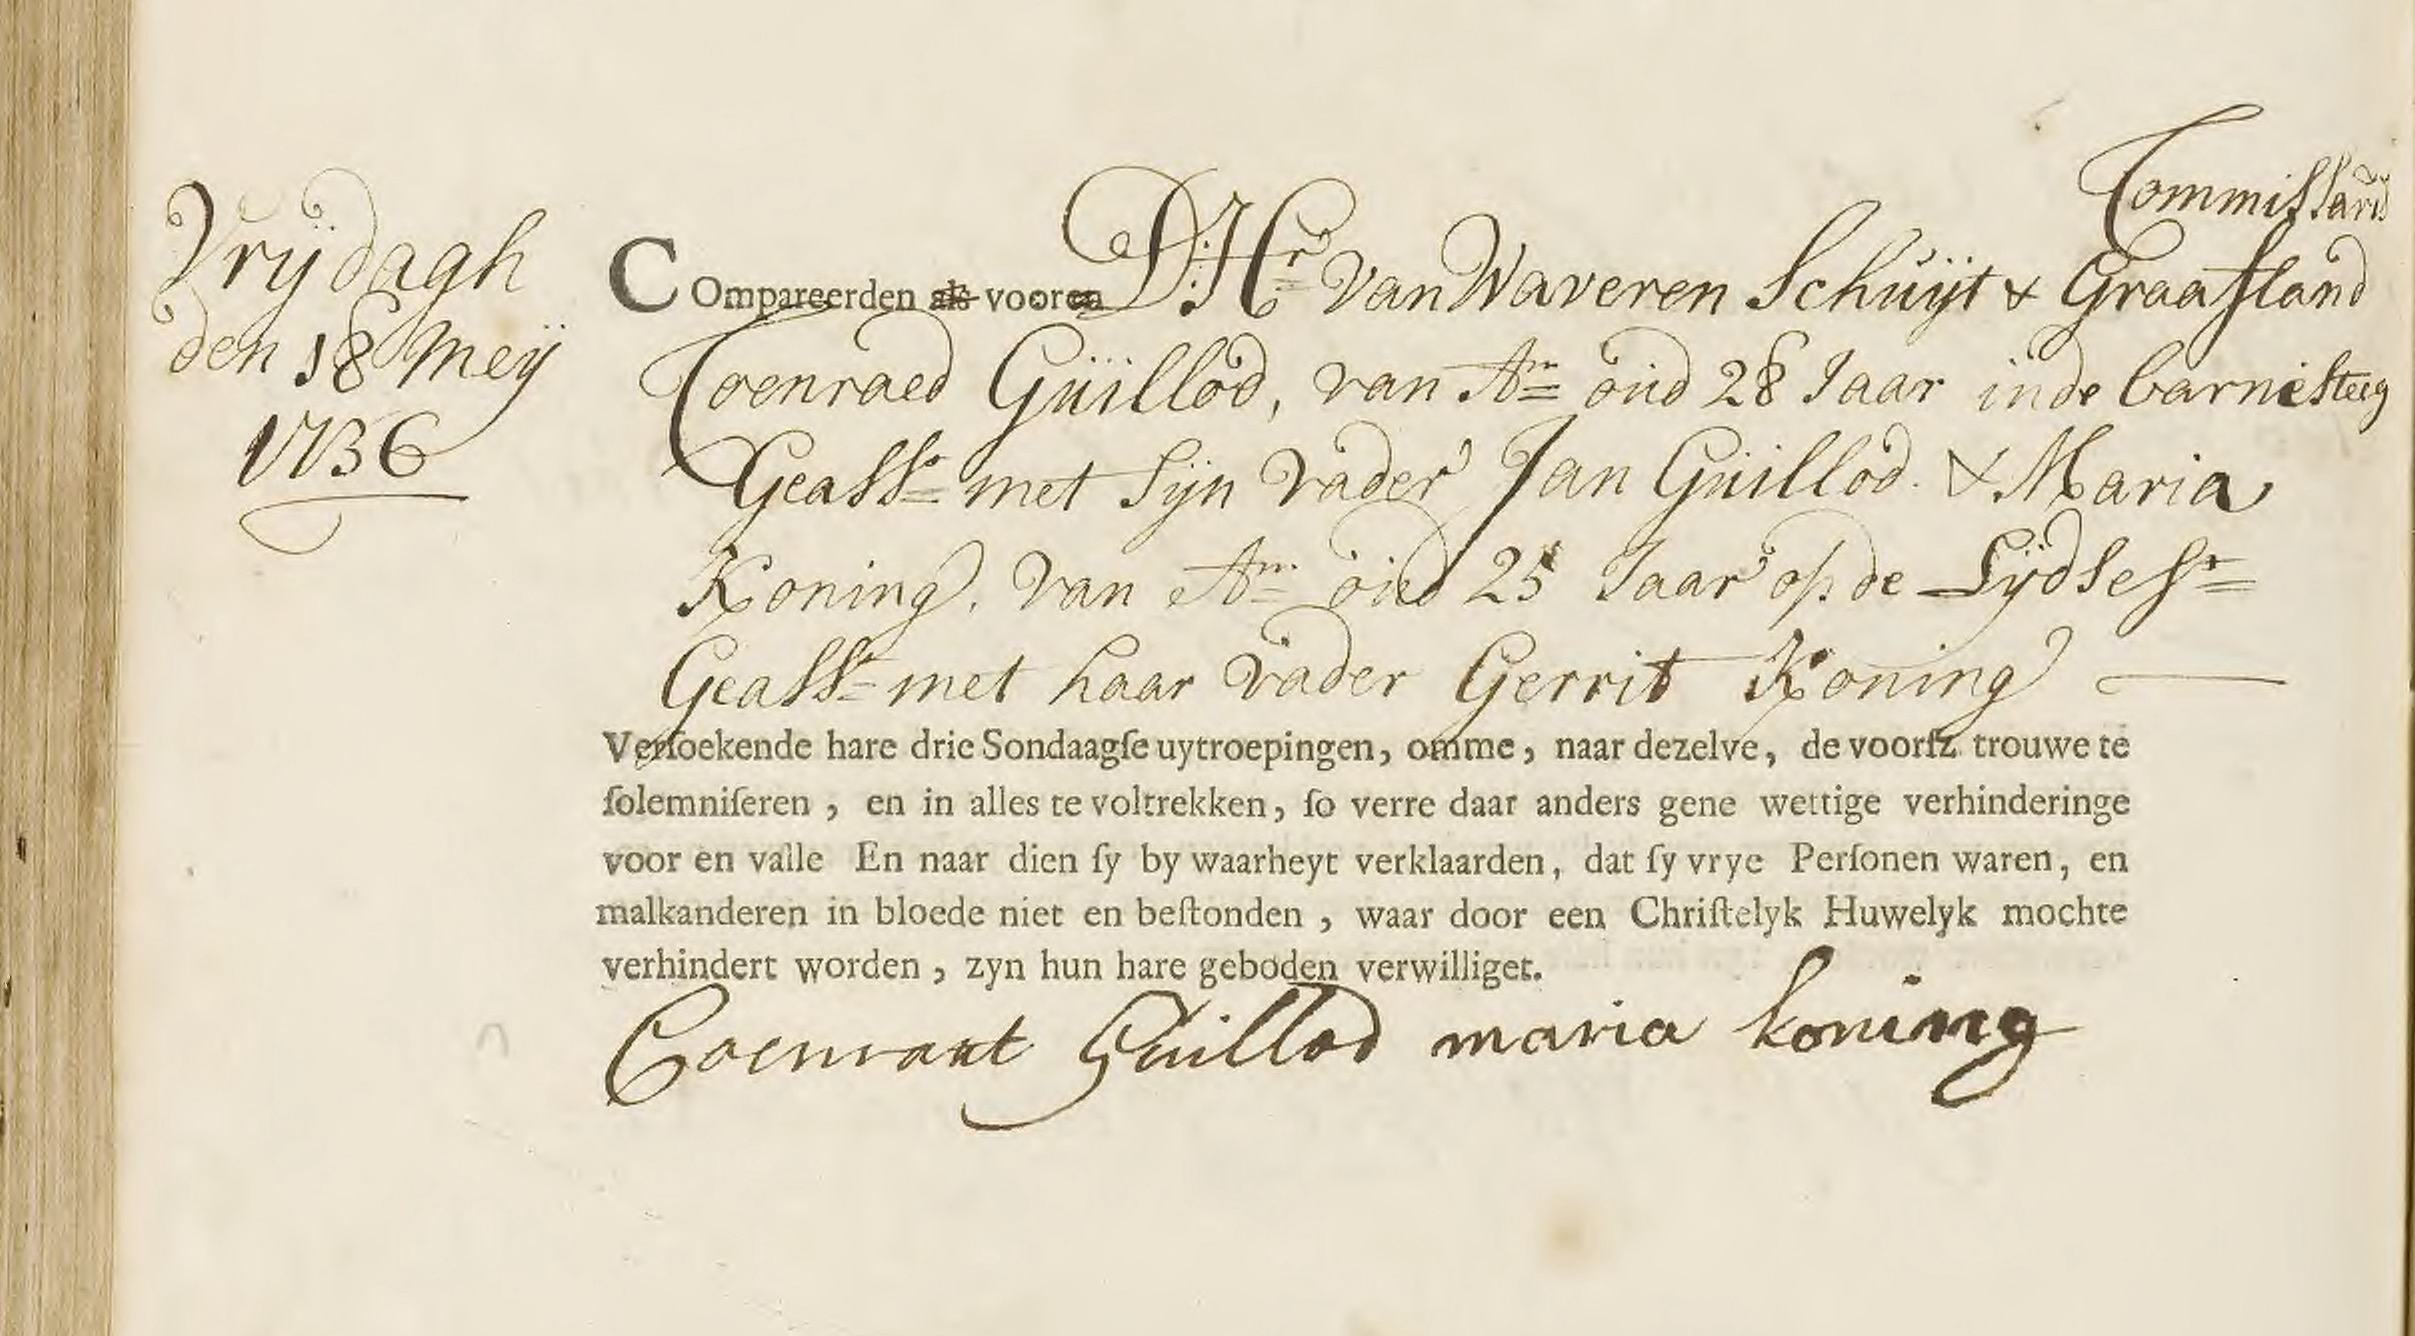 Commissariss
Vrijdagh
den 18 Meij
1736
COmpareerden als vooren D: Hr van Waveren Schuijt & Graafland
Coenraed Guillod, van Am oud 28 Jaar in de barnesteeg
Geasst met Sijn vader Jan Guillod. & Maria
Koning, van Am oud 25 Jaar op de Lijdsestr
Geasst met haar vader Gerrit Koning
Verſoekende hare drie Sondaagſe uytroepingen, omme, naar dezelve, de voorſz trouwe te
ſolemniſeren, en in alles te voltrekken, ſo verre daar anders gene wettige verhinderinge
voor en valle En naar dien ſy by waarheyt verklaarden, dat ſy vrye Perſonen waren, en
malkanderen in bloede niet en beſtonden, waar door een Chriſtelyk Huwelyk mochte
verhindert worden, zyn hun hare geboden verwilliget.
Coenraat Guillod maria koning